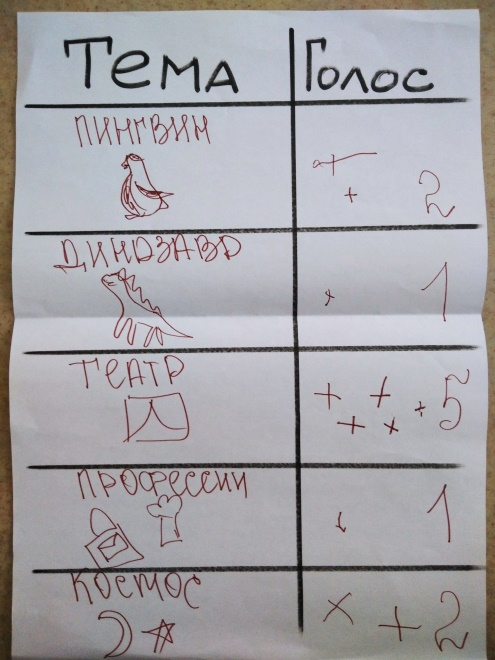 Тема Голос
ПИНГВИН
+ + 2
ДИНОЗАВР
+ 1
ТЕАТР
+ + + + + 5
ПРОФЕССИИ
+ 1
КОСМОС
+ + 2